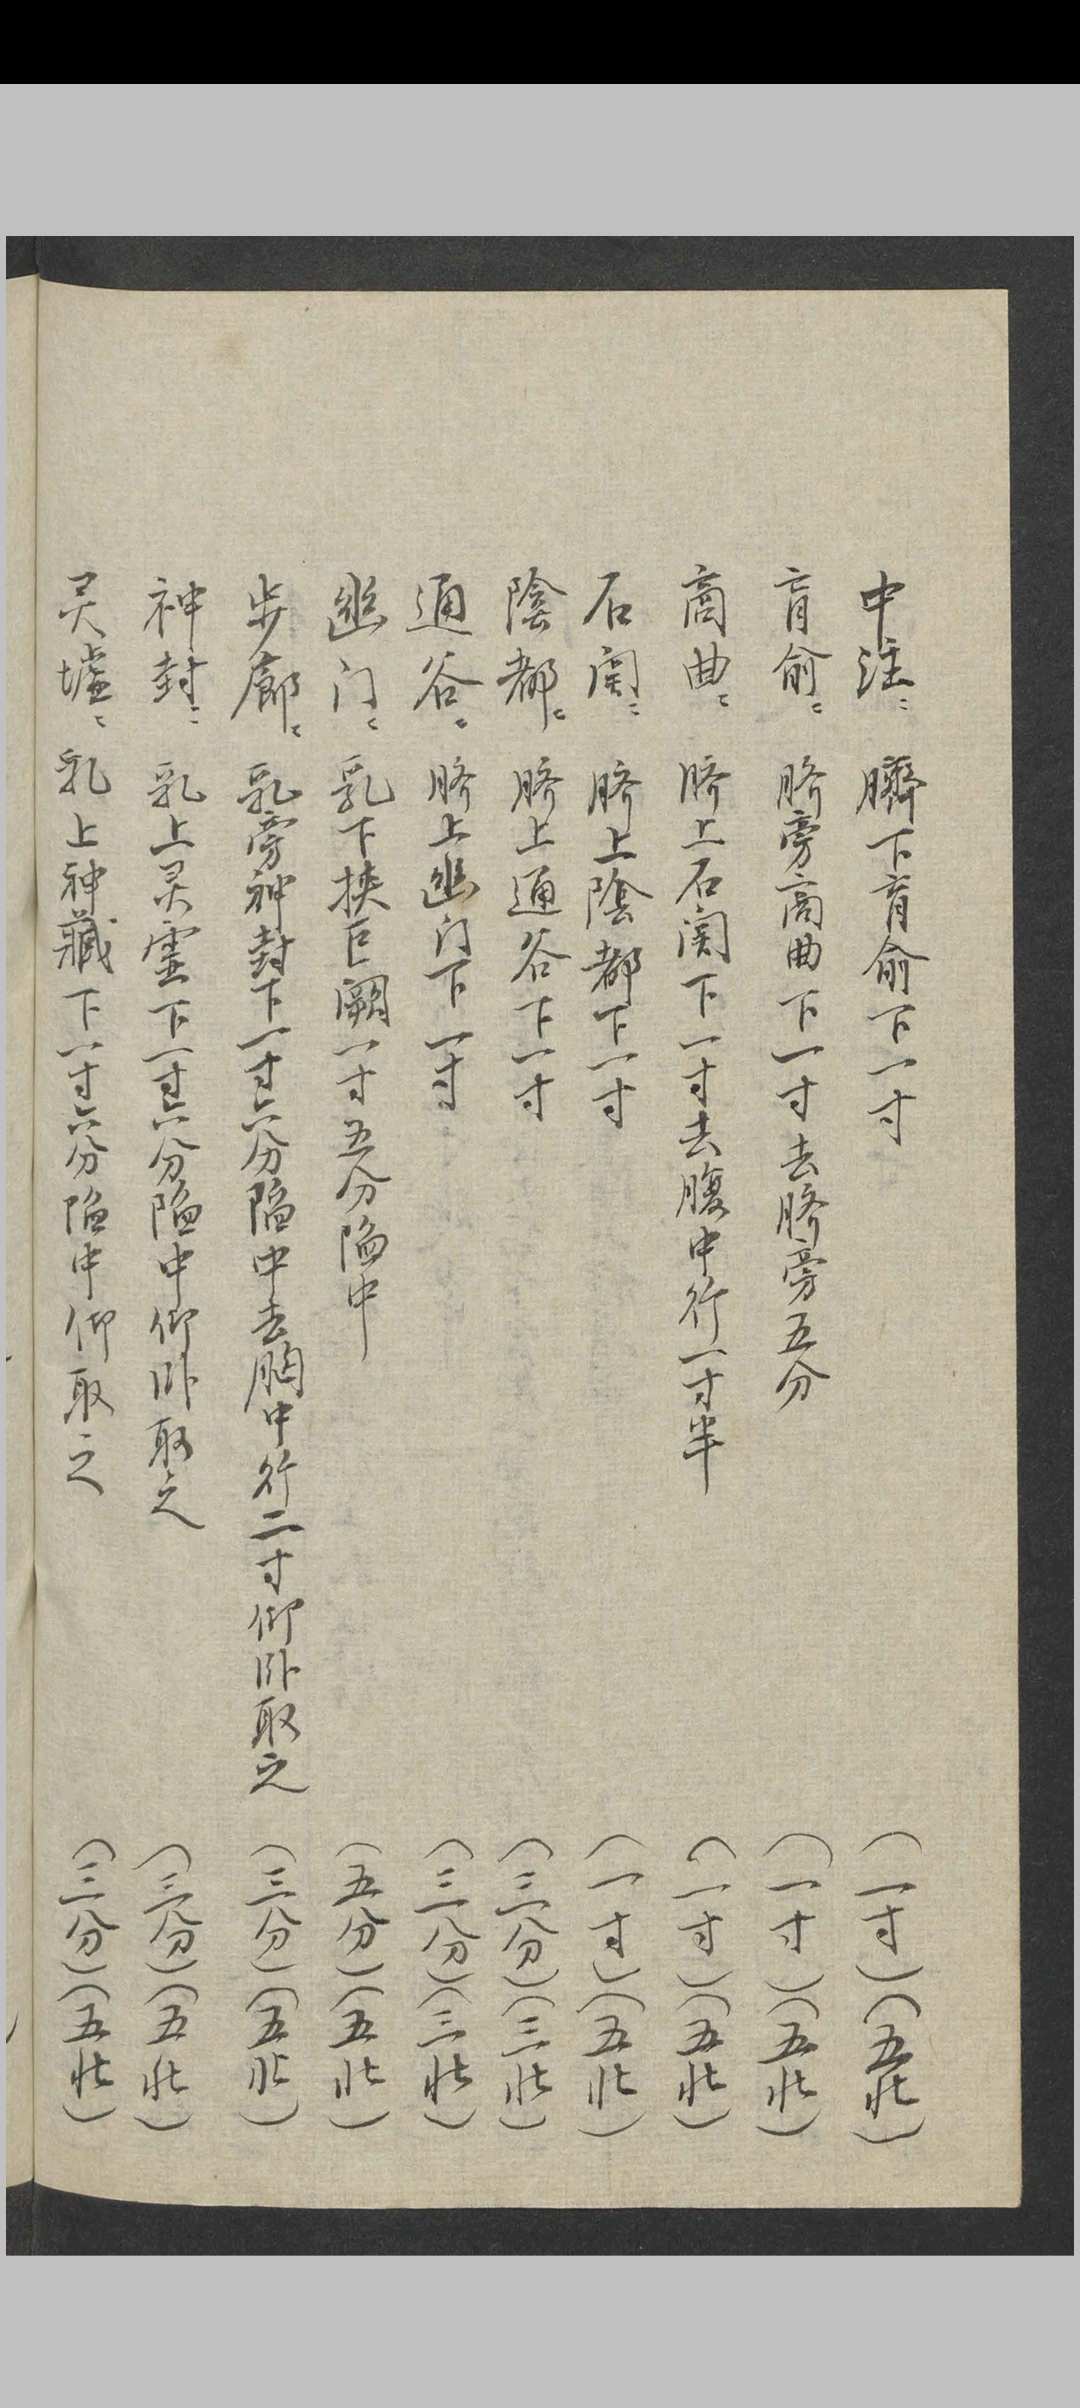 中注:臍下肓俞下一寸(一寸)(五壮)
肓俞:脐旁商曲下一寸去脐旁五分(一寸)(五壮)
商曲:脐上石関下一寸去腹中行一寸半(一寸)(五壮)
石関:脐上陰都下一寸(一寸)(五壮)
陰都:脐上通谷下一寸(三分)(三壮)
通谷:脐上幽门下一寸(三分)(三壮)
幽门:乳下挾巨阙一寸五分陷中(五分)(五壮)
步廊:乳旁神封下一寸六分陷中去胸中行二寸仰卧取之(三分)(五壮)
神封:乳上灵墟下一寸六分陷中仰卧取之(三分)(五壮)
灵墟:乳上神藏下一寸六分陷中仰取之(三分)(五壮)